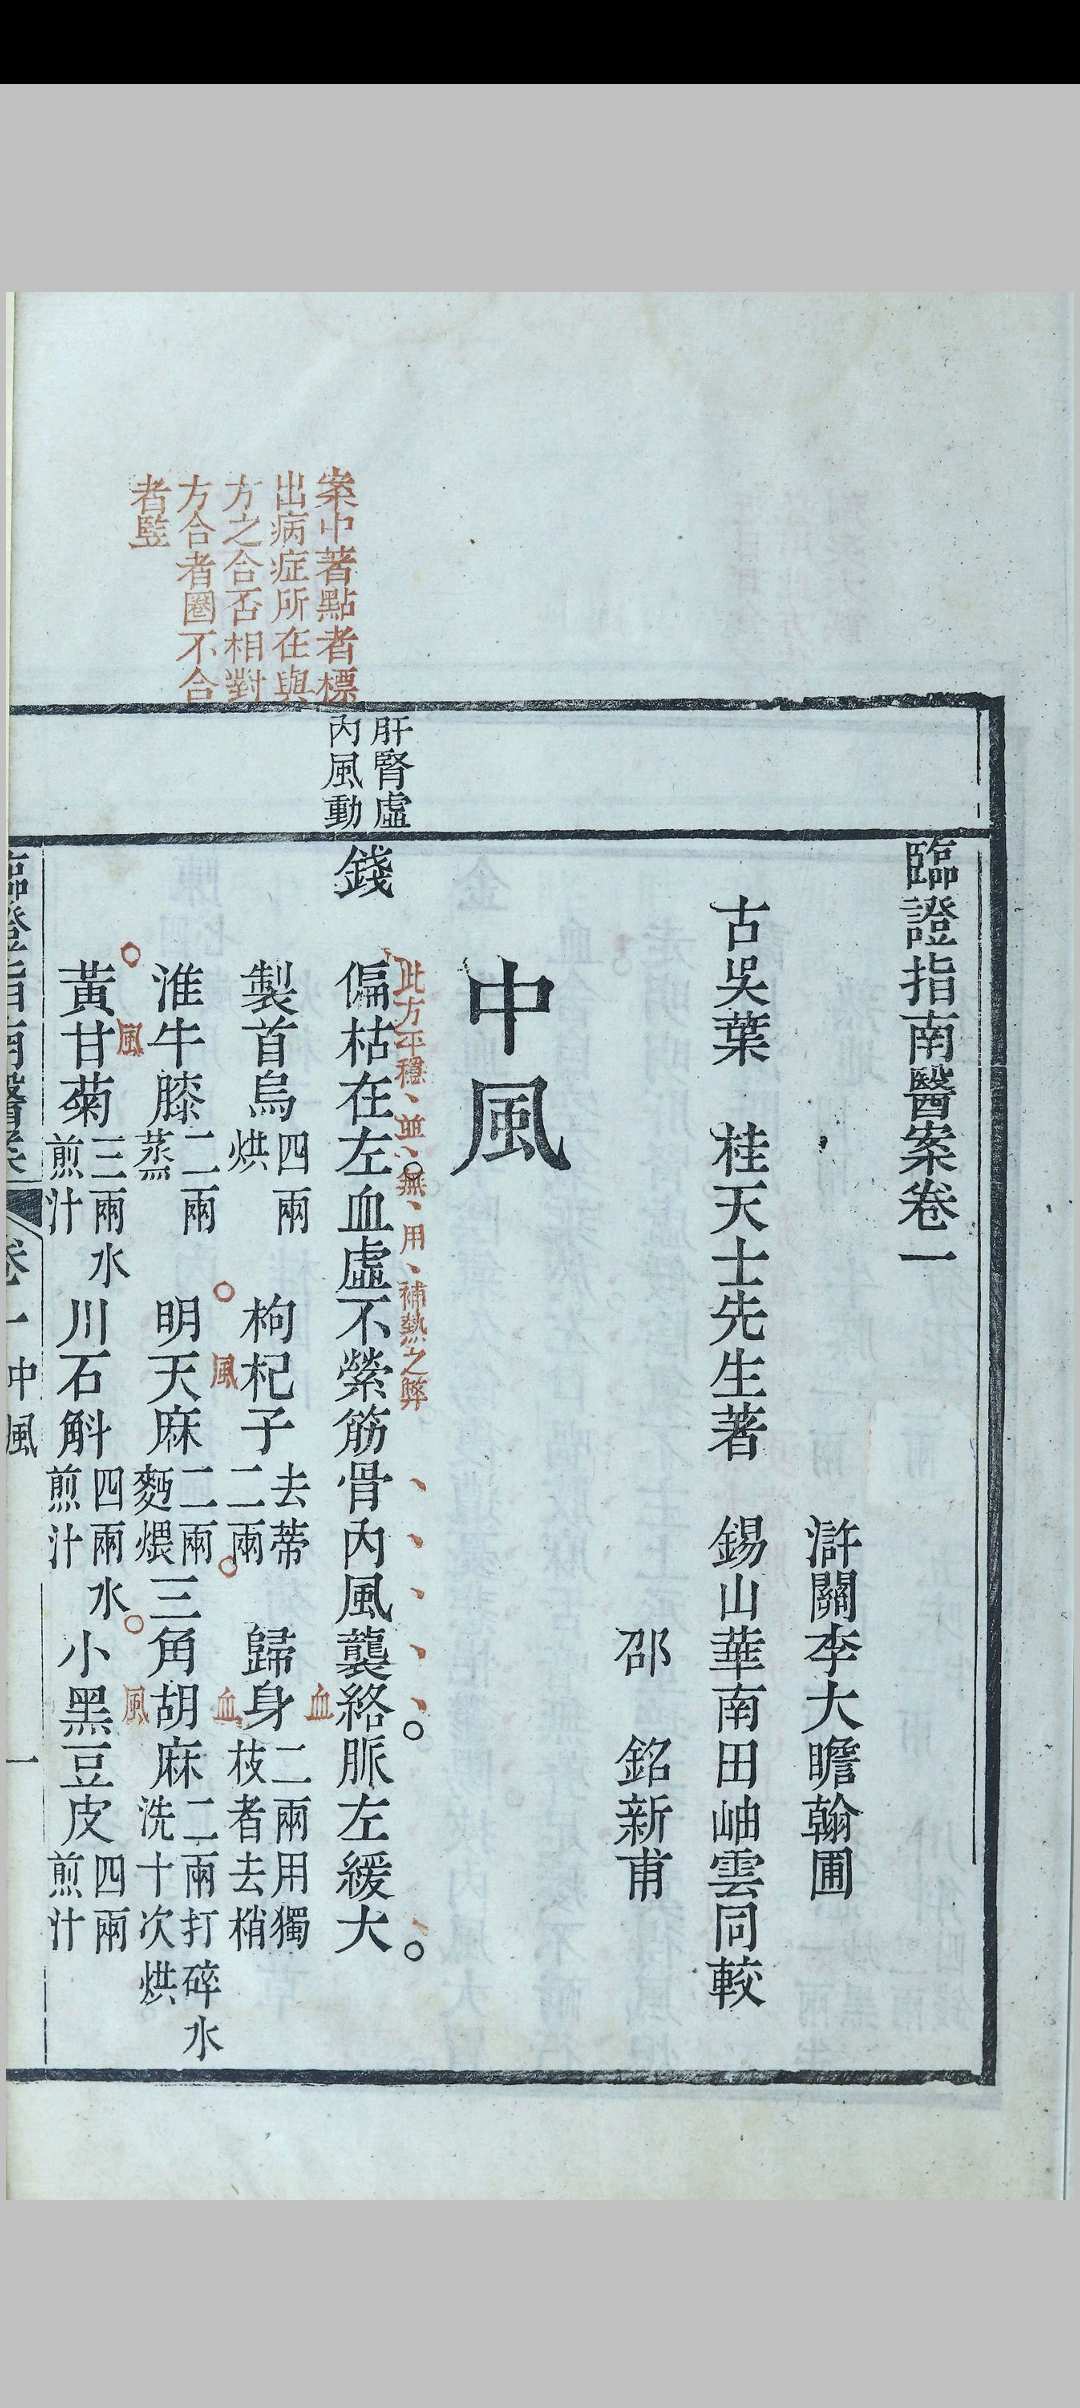 臨證指南醫案卷一
滸關李大瞻翰圃
古吳葉　桂天士先生著　錫山華南田岫雲同較
邵　銘新甫
中風
肝腎虛
內風動
錢　偏枯在左血虛不縈筋骨內風襲絡脈左緩大
此方平穩並無用補熱之弊
案中著點者標
出病症所在與
方之合否相對
方合者圈不合
者竪
製首烏四兩烘　枸杞子去蒂二兩　歸身二兩用獨枝者去梢
血
淮牛膝二兩蒸　明天麻二兩麪煨　三角胡麻二兩打碎水洗十次烘
風　血
黃甘菊三兩水煎汁　川石斛四兩水煎汁　小黑豆皮四兩煎汁
風　風
臨證指南醫案　卷一中風　一